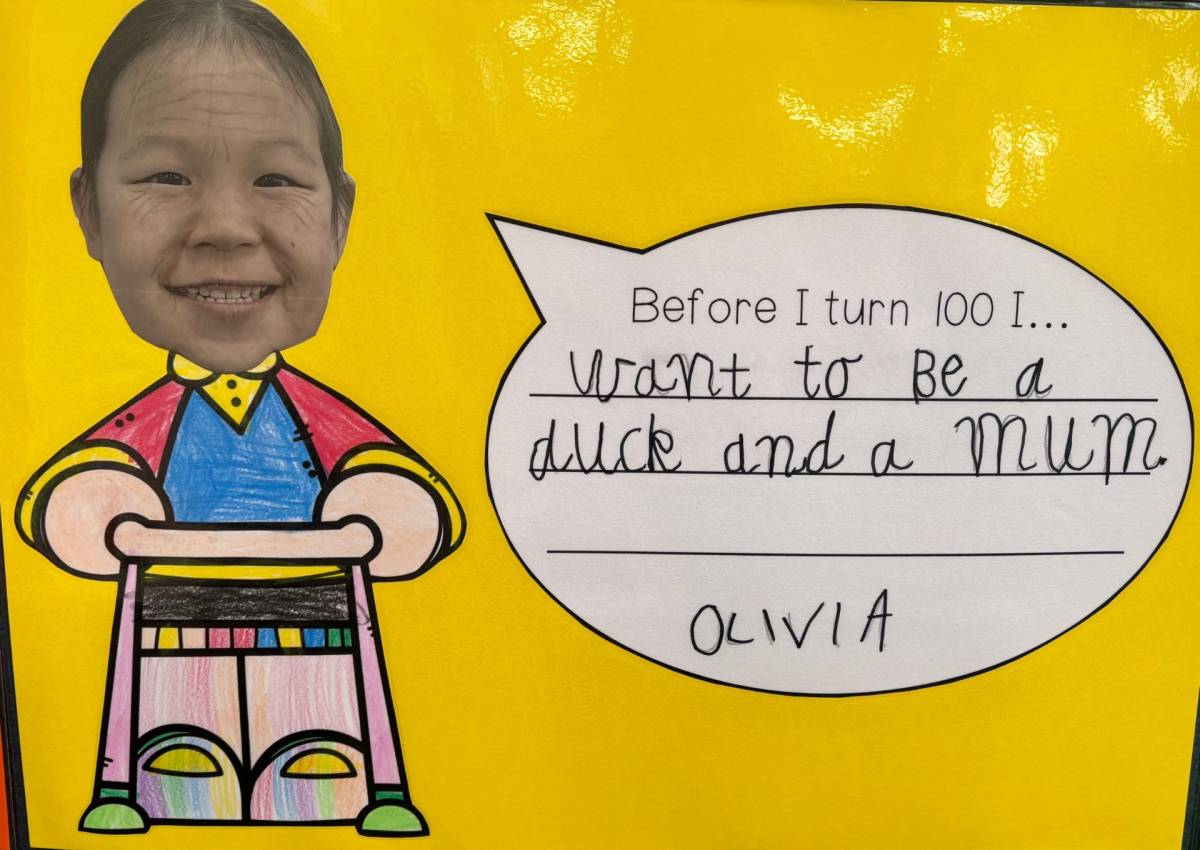 Before I turn 100 I...
want to Be a
duck and a mum.
OLIVIA